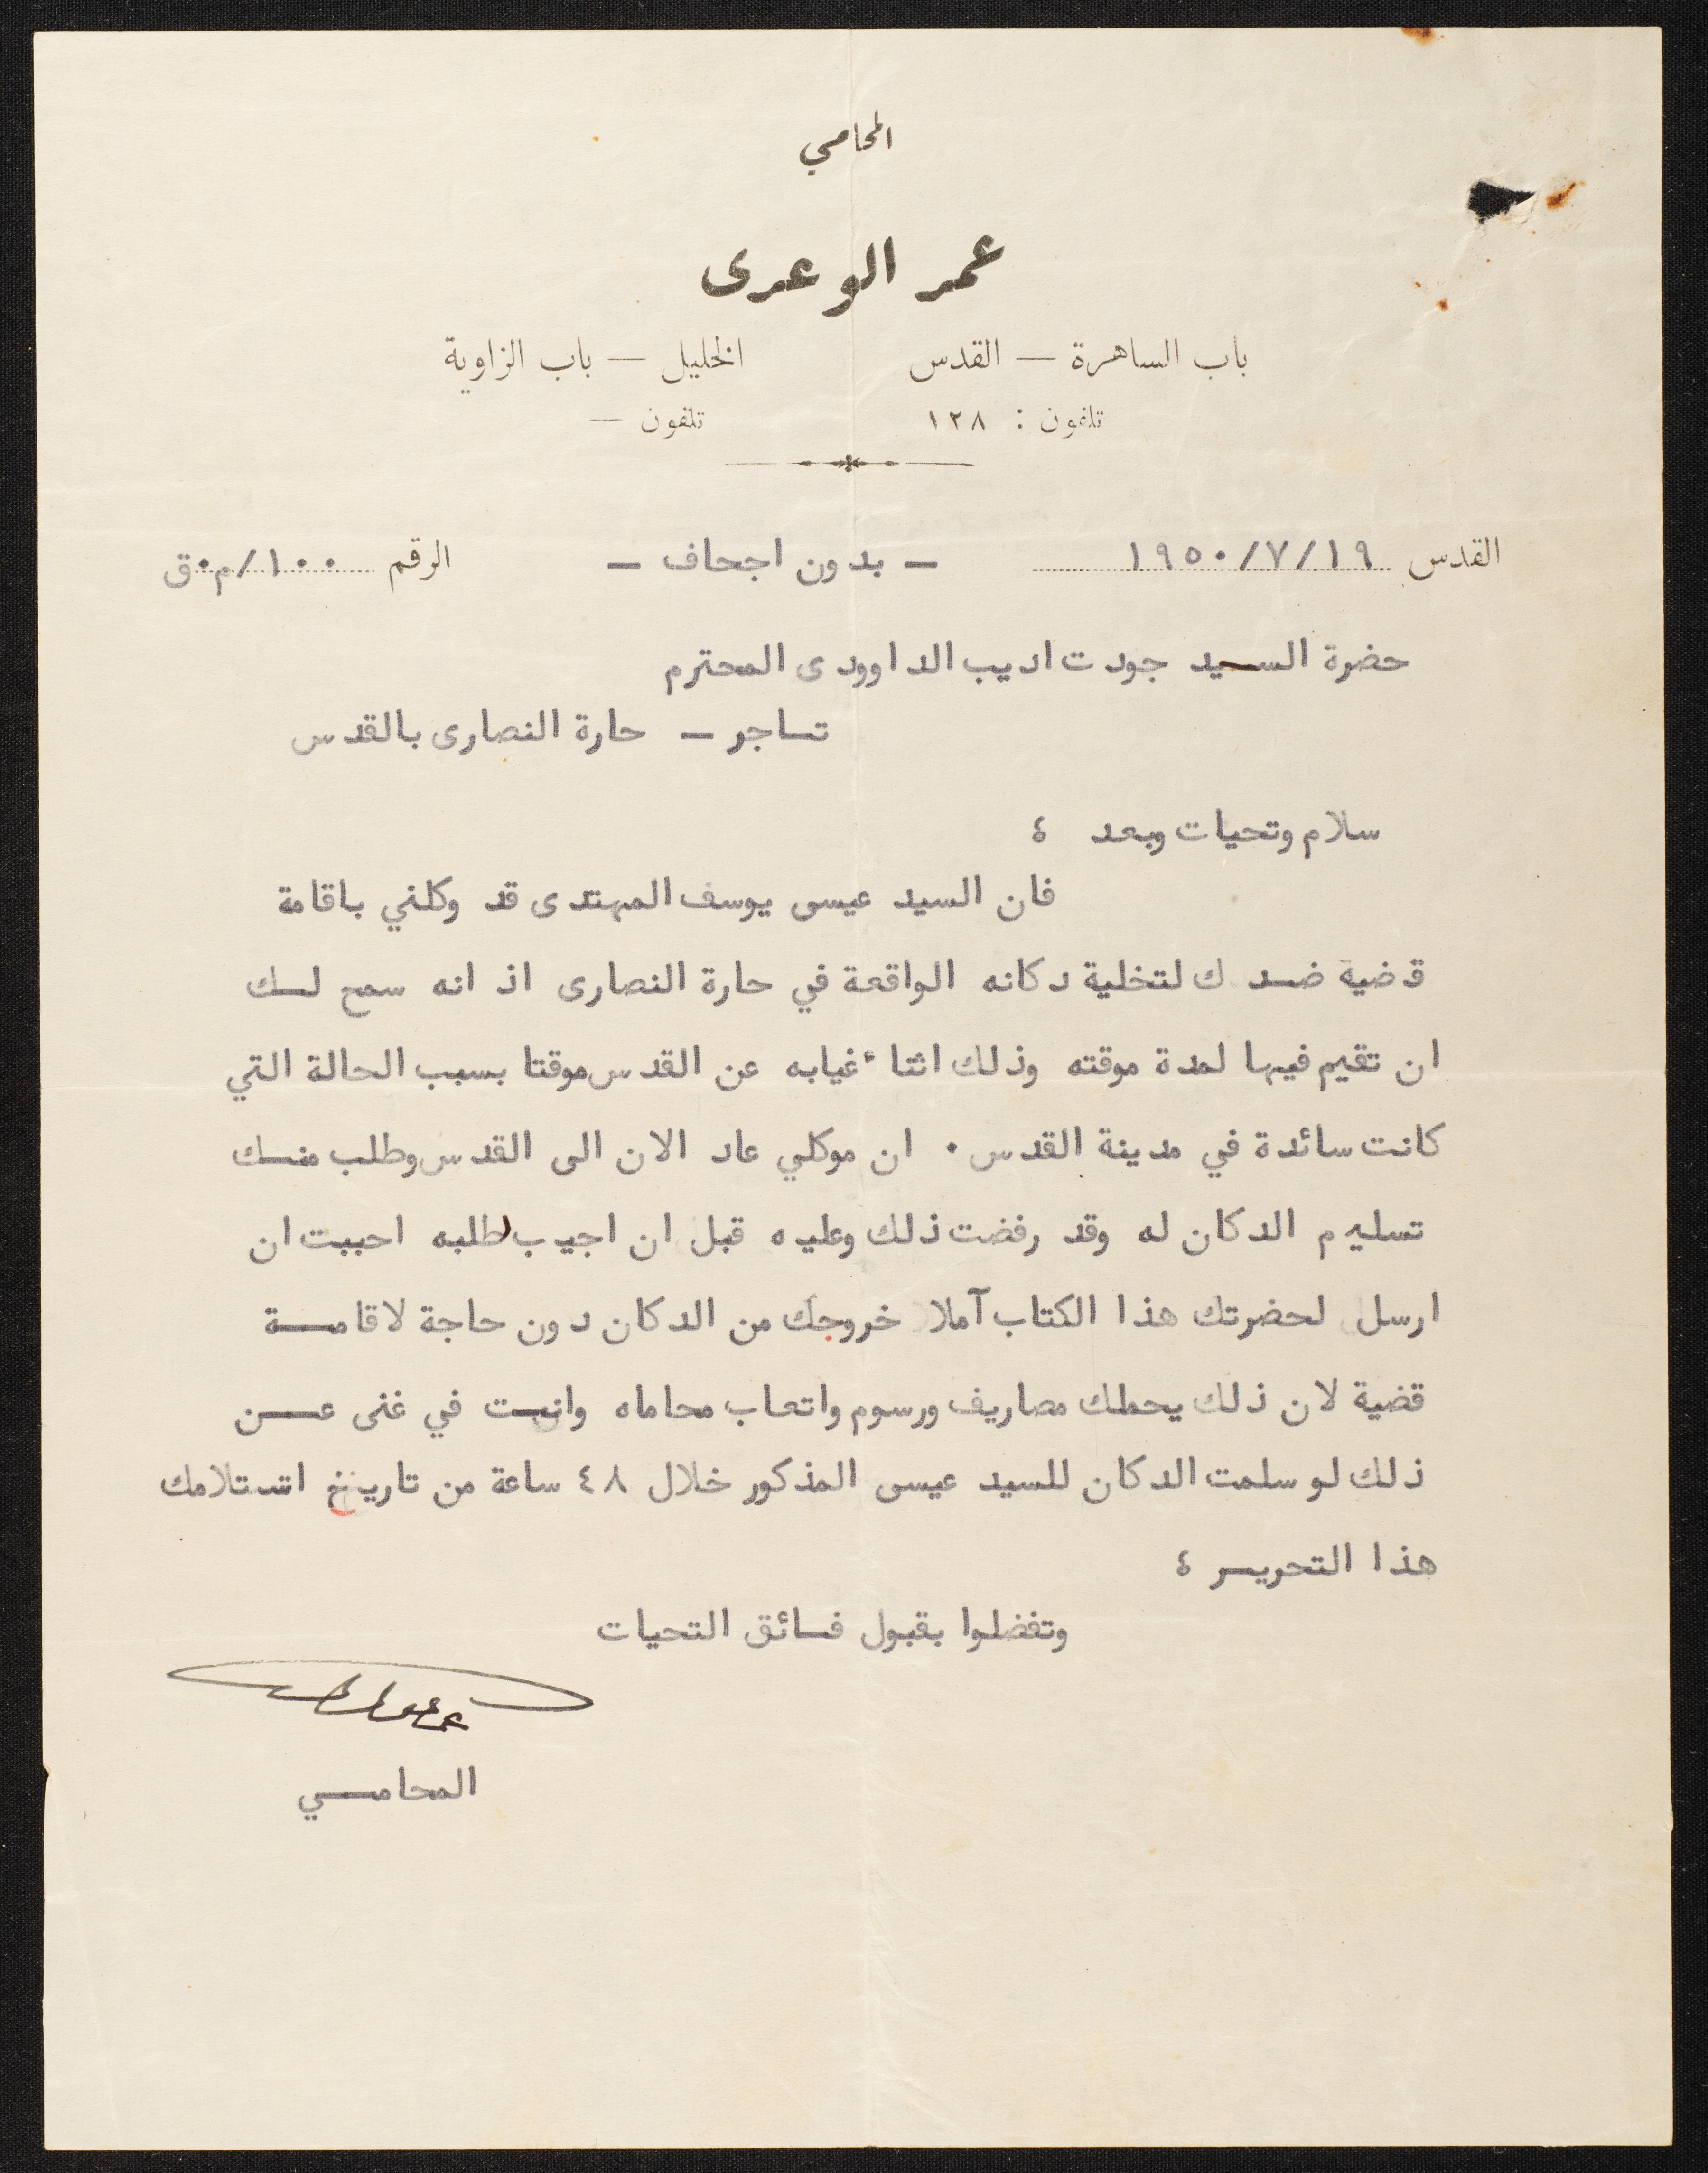 المحامي
عمر الوعرى
باب الساهرة — القدس الخليل — باب الزاوية
تلفون : ١٢٨ تلفون —
القدس ١٩٥٠/٧/١٩ — بدون اجحاف — الرقم ١٠٠/م٠ق
حضرة السيد جودت اديب الداوودى المحترم
تاجر — حارة النصارى بالقدس
سلام وتحيات وبعد ،
فان السيد عيسى يوسف المهتدى قد وكلني باقامة
قضية ضدك لتخلية دكانه الواقعة في حارة النصارى اذ انه سمح لك
ان تقيم فيها لمدة موقته وذلك اثناء غيابه عن القدس موقتا بسبب الحالة التي
كانت سائدة في مدينة القدس . ان موكلي عاد الان الى القدس وطلب منك
تسليم الدكان له وقد رفضت ذلك وعليه قبل ان اجيب لطلبه احببت ان
ارسل لحضرتك هذا الكتاب آملا خروجك من الدكان دون حاجة لاقامة
قضية لان ذلك يحملك مصاريف ورسوم واتعاب محاماه وانت في غنى عن
ذلك لو سلمت الدكان للسيد عيسى المذكور خلال ٤٨ ساعة من تاريخ استلامك
هذا التحرير ،
وتفضلوا بقبول فائق التحيات
المحامي